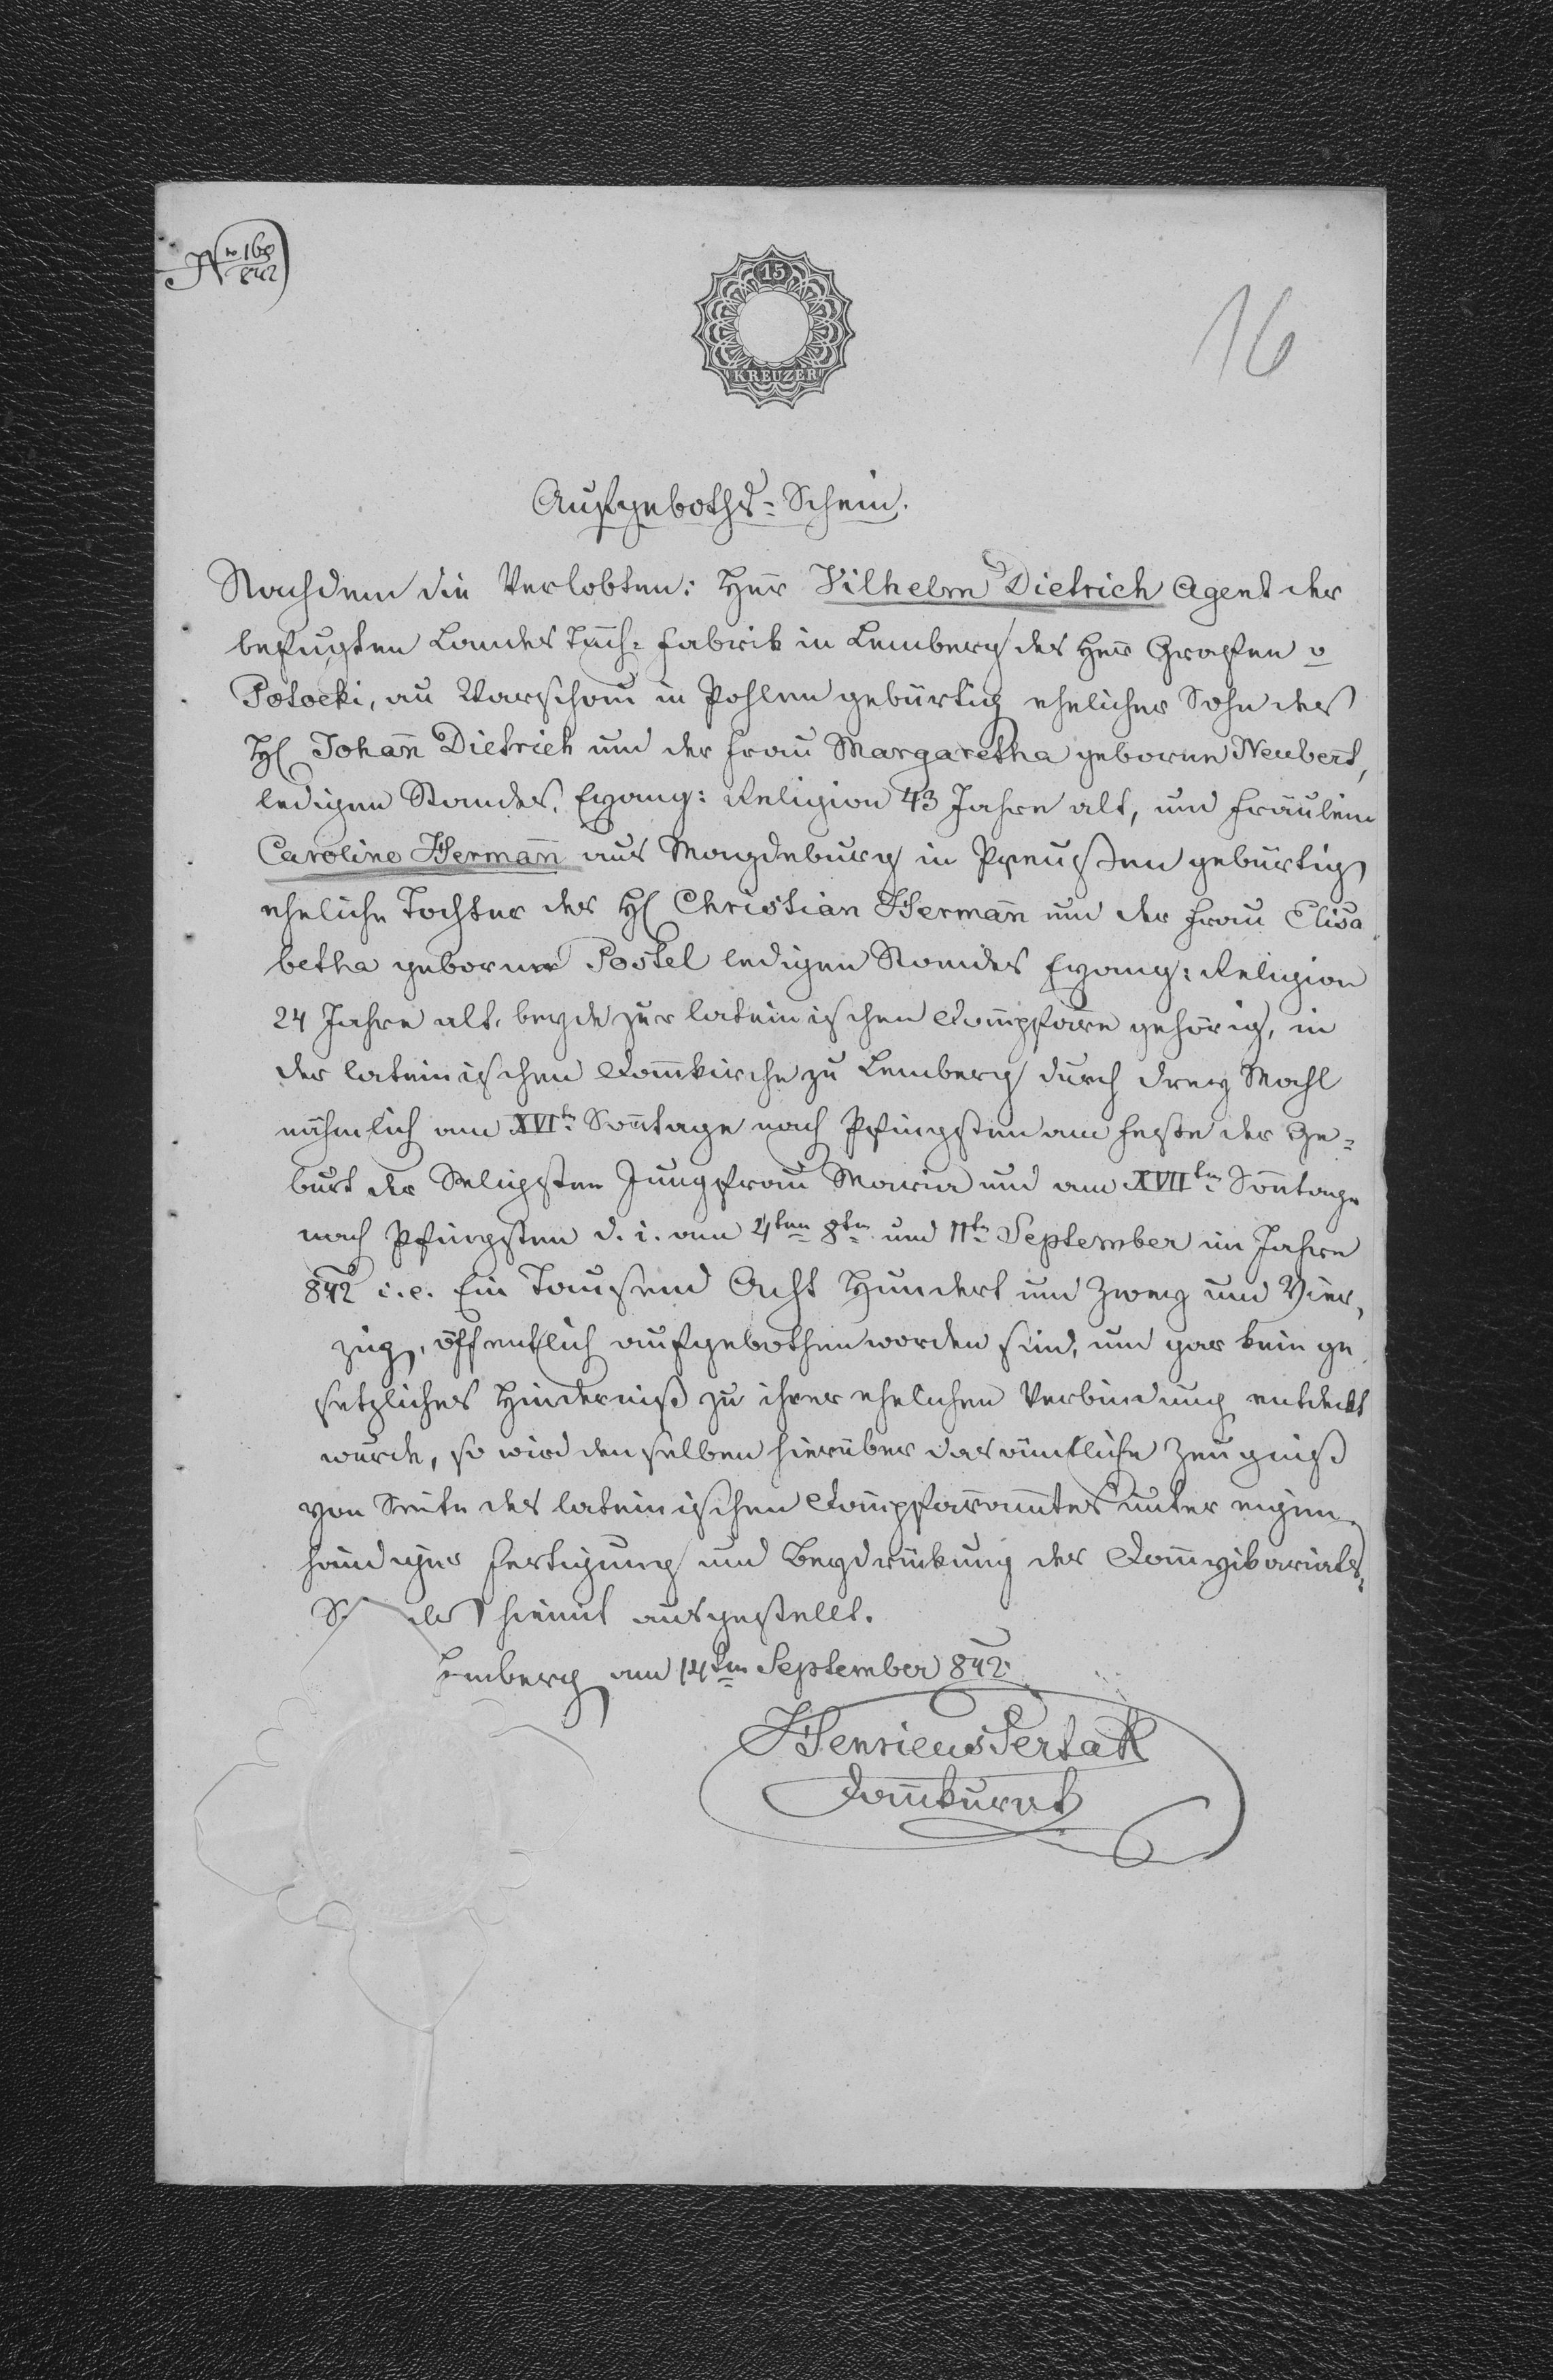 Nro 168
842
15
KREUZER
16
Aufgeboths-Schein.
Nachdem die Verlobten: Herr Vilhelm Dietrich Agent der
befugten Landes Tuch-Fabrik in Lemberg des Herr Grafen v
Potocki, au Warschau in Pohlen gebürtig ehelicher Sohn des
H Johan̄ Dietrich und der Frau Margaretha geborne Neubert,
ledigen Standes, Evang: Religion 43 Jahre alt, und Fräulein
Caroline Herman̄ aus Magdeburg in Preußen gebürtig
eheliche Tochter des H Christian Herman̄ und der Frau Elisa
betha geborner Postel ledigen Standes Evang: Religion
24 Jahre alt, beyde zur lateinischen Dom̄pfarre gehörig, in
der lateinischen Domkirche zu Lemberg durch drey Mahl
nähmlich am XVIt. Son̄tage nach Pfingsten am Feste der Ge-
burt der Seligsten Jungfrau Maria und am XVIIten Son̄tage
nach Pfingsten d. i. am 4ten 8ten und 11tn September im Jahre
842 i.e. Ein Tausend Acht Hundert und Zwey und Vier,
zig, öffentlich aufgebothen worden sind, und gar kein ge
setzliches Hinderniß zu ihrer ehelichen Verbindung entdeckt
wurde, so wird denselben hierüber das ämtliche Zeugniß
von Seite des lateinischen Dom̄pfarramtes unter eigen
händiger Fertigung und Beydrückung des Dom̄vikariats-
S des hiemit ausgestellt.
Lemberg am 14ten September 842.
Henricus Pertak
Domkurat